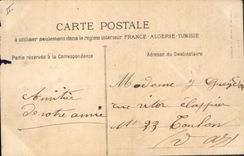 CARTE POSTALE
à utiliser seulement dans le régime intérieur FRANCE-ALGERIE-TUNISIE
Partie réservée à la Correspondance
Adresse du Destinataire
Amitié
Madame
rue
Notre amie
N° 33 Toulon